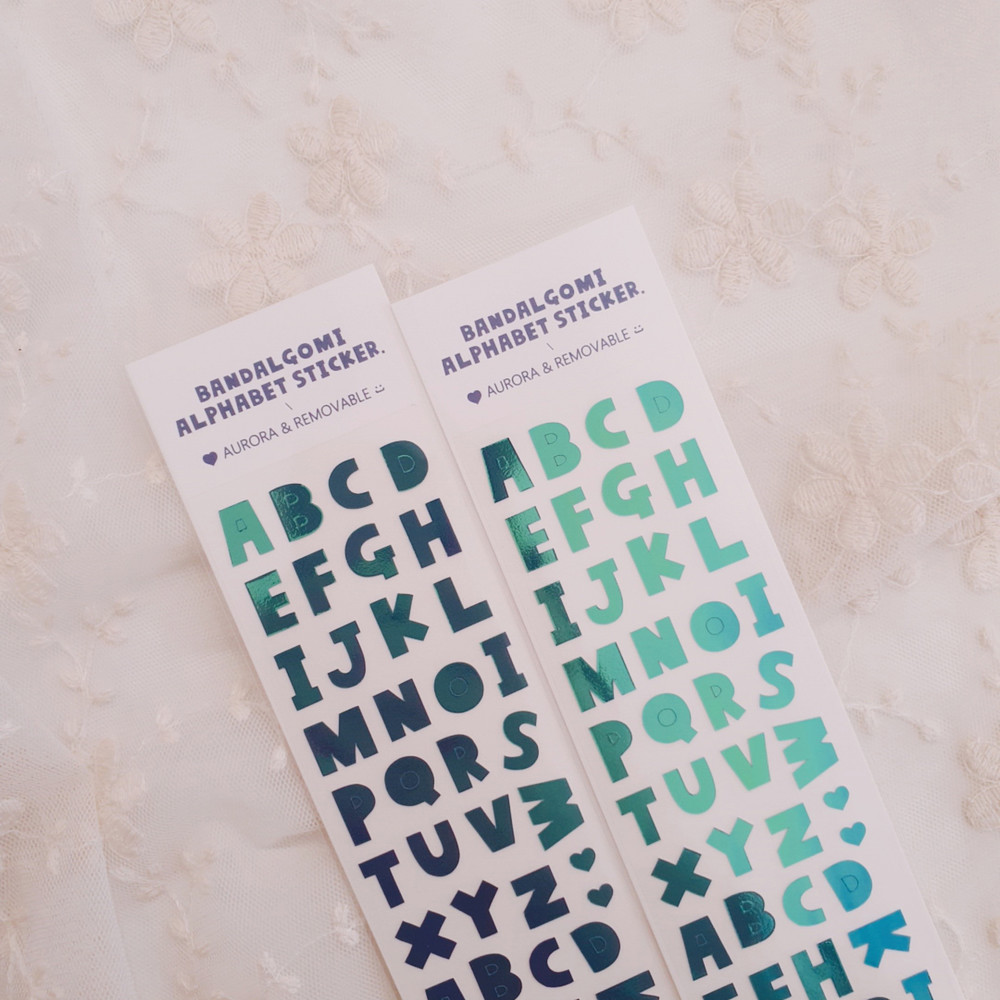 BANDALGOMI
ALPHABET STICKER.
\
♥ AURORA & REMOVABLE
A B C D
E F G H
I J K L
M N O I
P Q R S
T U V W
X Y Z ♥ ♥
A B C D
BANDALGOMI
ALPHABET STICKER.
\
♥ AURORA & REMOVABLE
A B C D
E F G H
I J K L
M N O I
P Q R S
T U V W
X Y Z ♥ ♥
A B C D
E F H K